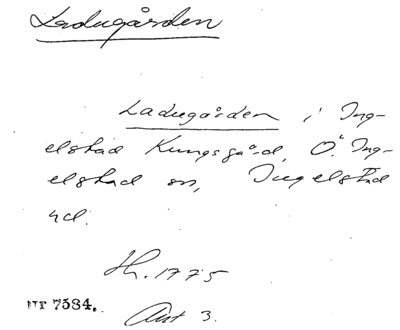 Ladugården
Ladugården i Ing-
elstad Kungsgård, Ö. Ing-
elstad sn, Ingelstad
hd.
Hr. 1775
Nr 7584.
Ant 3.